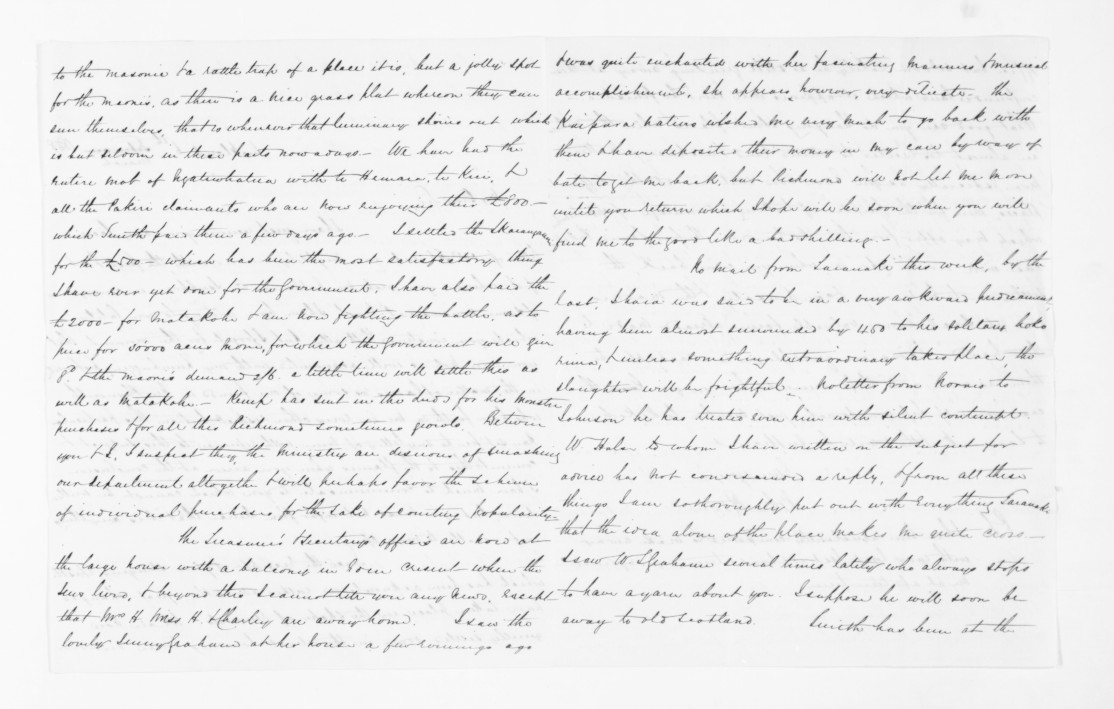 to the masonic & a rattle trap of a place it is, but a jolly spot
for the maoris, as there is a nice grass plat whereon they can
sun themselves, that is whenever that luminary shines out which
is but seldom in these parts now a days - We have had the
entire mob of Ngatiwhatua with te Hemara, te Kiri, &
all the Pakiri claimants who are now enjoying their £800 -
which Smith paid them a few days ago - I settled the
for the £500 - which has been the most satisfactory thing
I have ever yet done for the Government. I have also paid the
£2000 - for Matakohe & am now fighting the battle, as to
price for 30000 acres more, for which the Government will give
& the maoris demand a little time will settle this as
well as Matakohe - Kemp has sent in the deeds for his monster
purchases & for all this Richmond sometimes growls. Between
you & I, I suspect they, the Ministry are desirous of smashing
our department altogether & will perhaps favor the scheme
of individual purchases for the sake of courting popularity -
The Treasurer's & Secretary's offices are now at
the large house with a balcony in Eden Cresent when the
lived, & beyond this I cannot tell you any news, except
that Mrs H. Miss H. & Charley are away home. I saw the
lovely Jenny Graham at her house a few evenings ago
& was quite enchanted with her fascinating manners & musical
accomplishments, she appears, however, very delicate - The
Kaipara natives wished me very much to go back with
them & have deposited their money in my care by way of
bait to get me back, but Richmond will not let me move
until you return which I hope will be soon when you will
find me to the good like a bad shilling. -
No mail from Taranaki this week, by the
last, Ihaia was said to be in a very awkward predicament,
having been almost surrounded by 450 to his solitary hoko
rima, & unless something extraordinary takes place, the
slaughter will be frightful - No letter from Norris to
Johnson he has treated even him with silent contempt
W Halse to whom I have written on the subject for
advice has not condescended a reply, & from all these
things I am so thoroughly put out with Everything Taranaki
that the idea alone of the place makes me quite cross. -
I saw W S Grahame several times lately who always stops
to have a yarn about you. I suppose he will soon be
away to old Scotland Smith has been at the